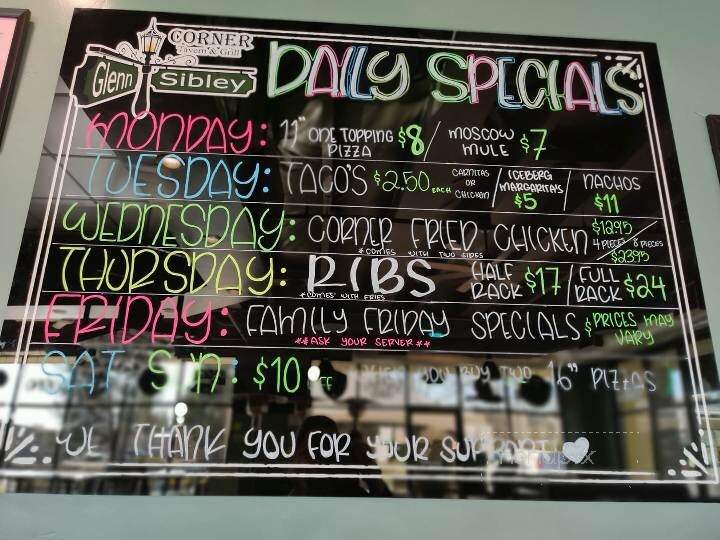 CORNER
Tavern & Grill
Glenn Sibley
DAILY SPECIALS
MONDAY: 11" ONE TOPPING PIZZA $8 / MOSCOW MULE $7
TUESDAY: TACO'S $2.50 EACH CARNITAS OR CHICKEN / ICEBERG MARGARITAS $5 / NACHOS $11
WEDNESDAY: CORNER FRIED CHICKEN $12.95 4 PIECES / 8 PIECES $23.95
*COMES WITH TWO SIDES
THURSDAY: RIBS HALF RACK $17 / FULL RACK $24
*COMES WITH FRIES
FRIDAY: FAMILY FRIDAY SPECIALS $PRICES MAY VARY
**ASK YOUR SERVER**
SAT SUN: $10 OFF WHEN YOU BUY TWO 16" PIZZAS
WE THANK YOU FOR YOUR SUPPORT